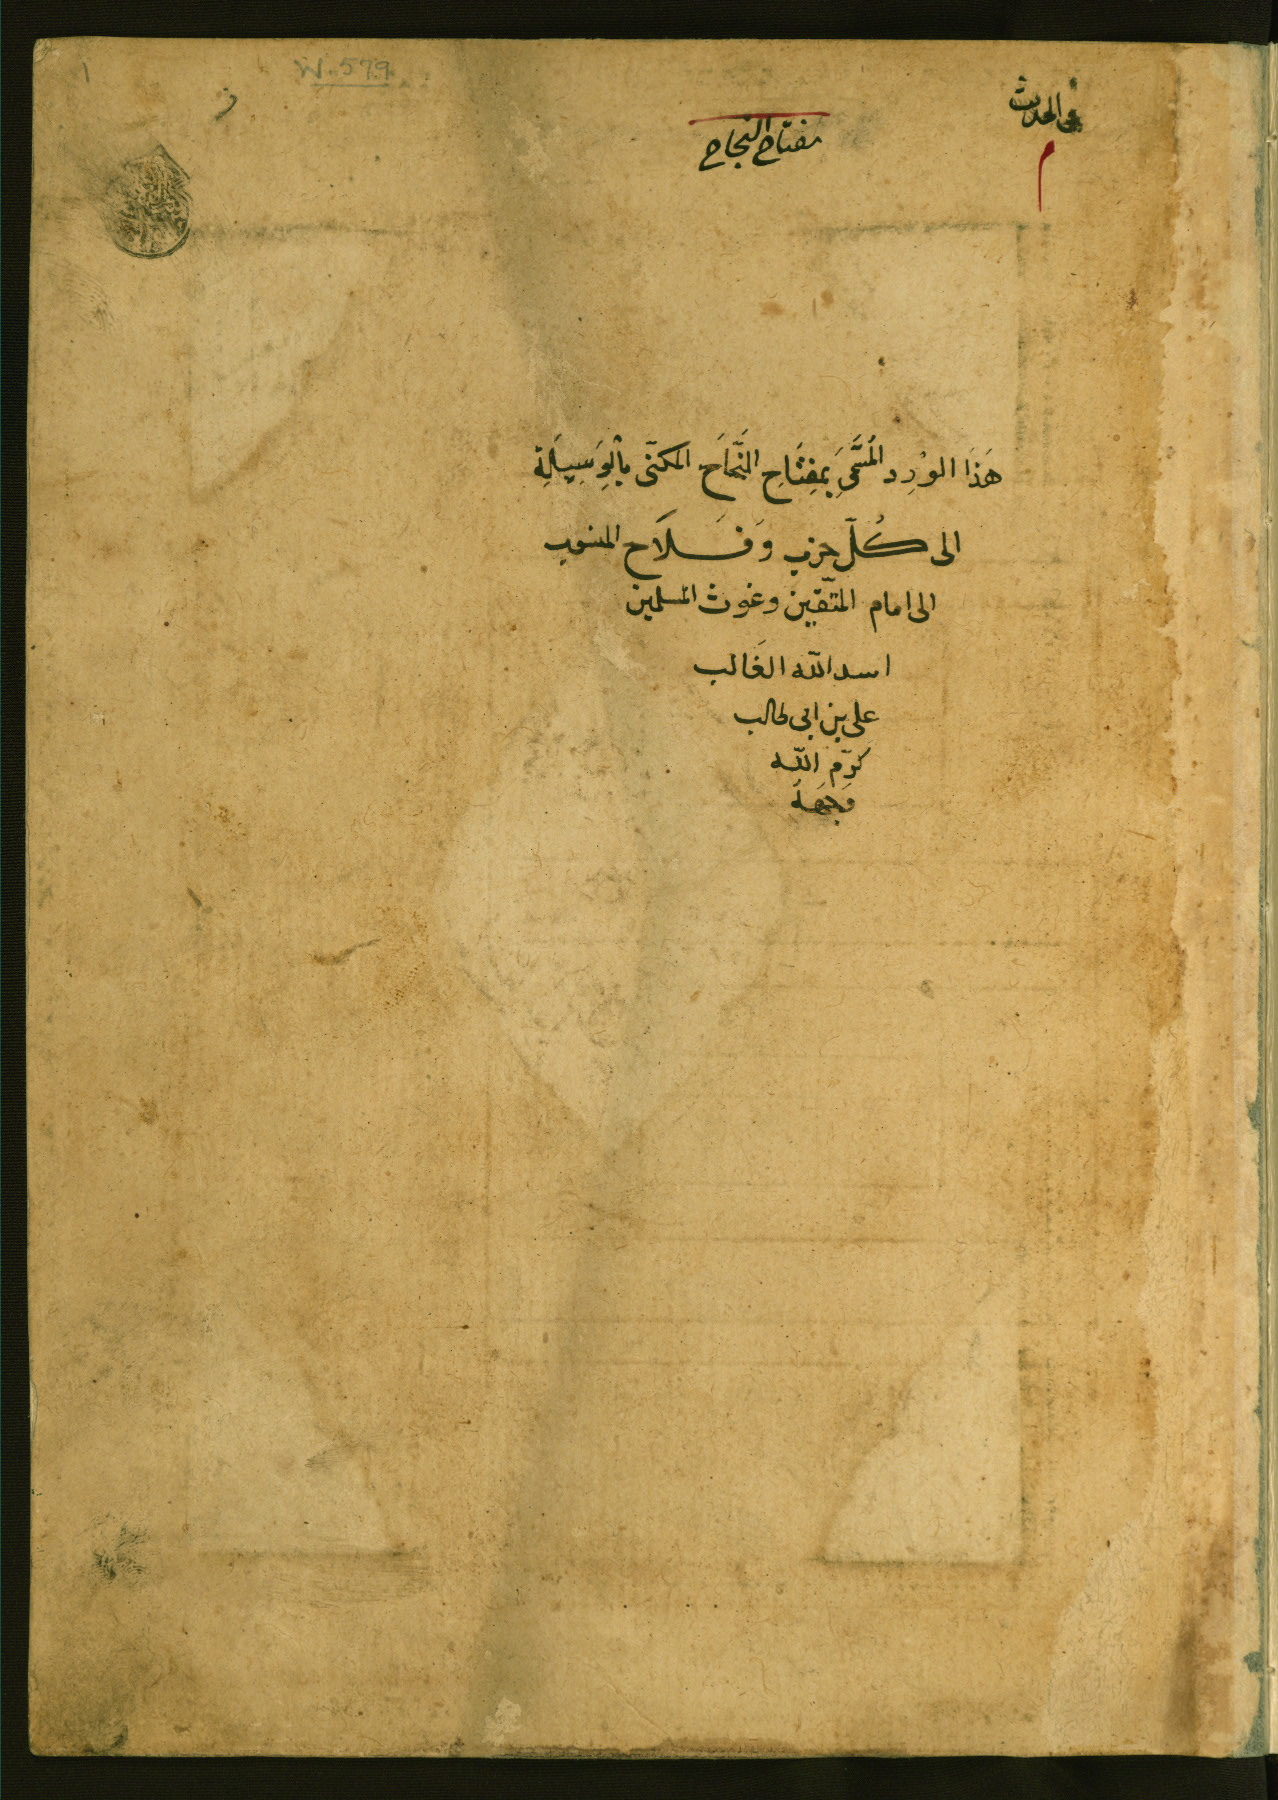 W.579
في الحديث
مفتاح النجاح
هَذَا الوِرْد المُسَمَّى بِمِفْتَاحِ النَّجَاحِ المكنّى بِالْوَسِيلَةِ
الى كُلّ حزب وَفَلَاح المنسوب
الى امام المتّقين وغوث المسلمين
اسد اللّه الغَالب
على بن ابى طالب
كرّم اللّه
وَجهَهُ